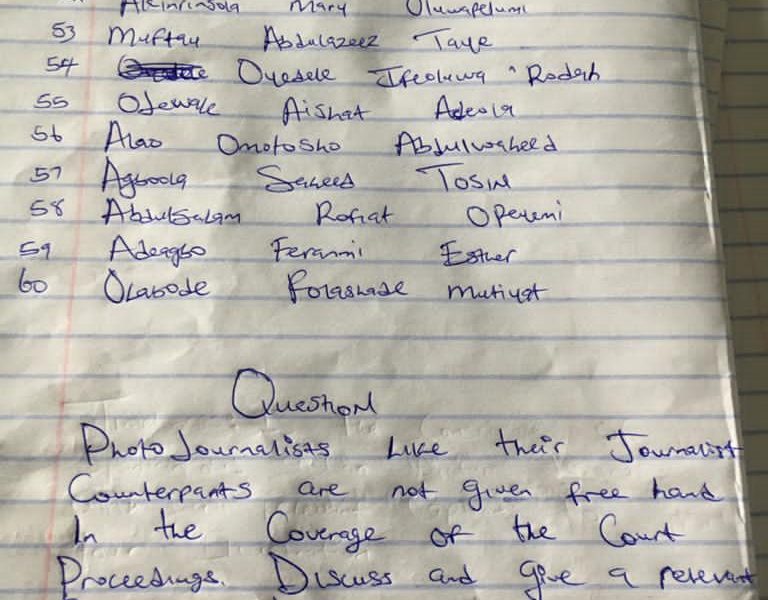 Akinrinsola Mary Oluwapelumi
53 Muftau Abdulazeez Taye
54 Oyesele Ifeoluwa Rodah
55 Ojewale Aishat Adeola
56 Alao Omotosho Abdulwaheed
57 Agboola Saheed Tosin
58 Abdulsalam Rofiat Opeyemi
59 Adeagbo Feranmi Esther
60 Olabode Folashade Mutiyat
Question
Photo Journalists Like their Journalist
Counterparts are not given free hand
In the Coverage of the Court
Proceedings. Discuss and give a relevant